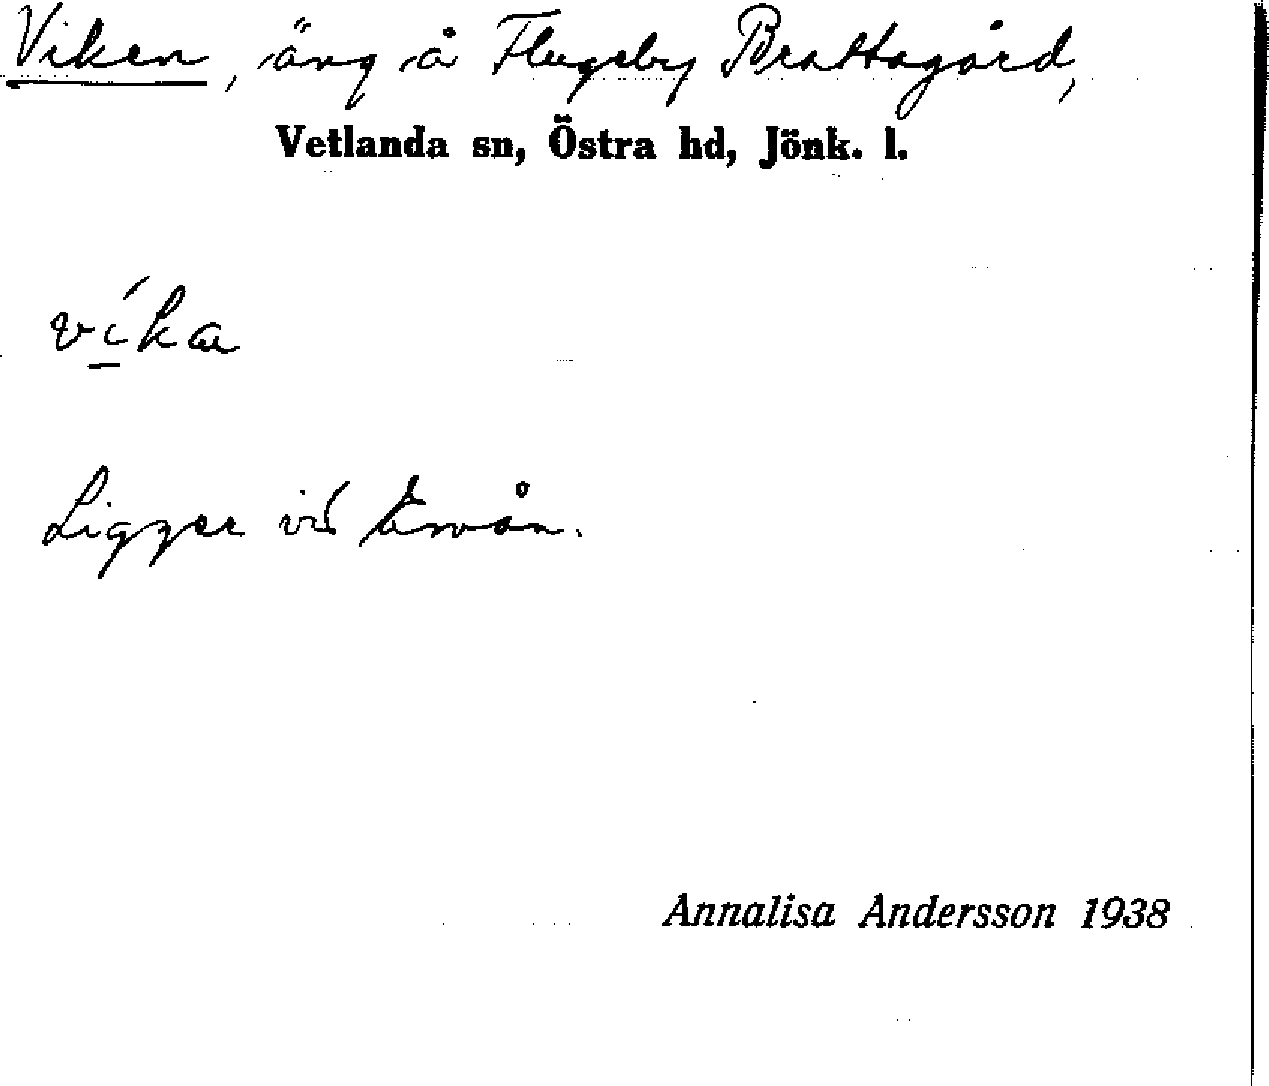 Viken, äng å Flugeby Brattagård,
Vetlanda sn, Östra hd, Jönk. l.
Ligger vid Emån.
Annalisa Andersson 1938